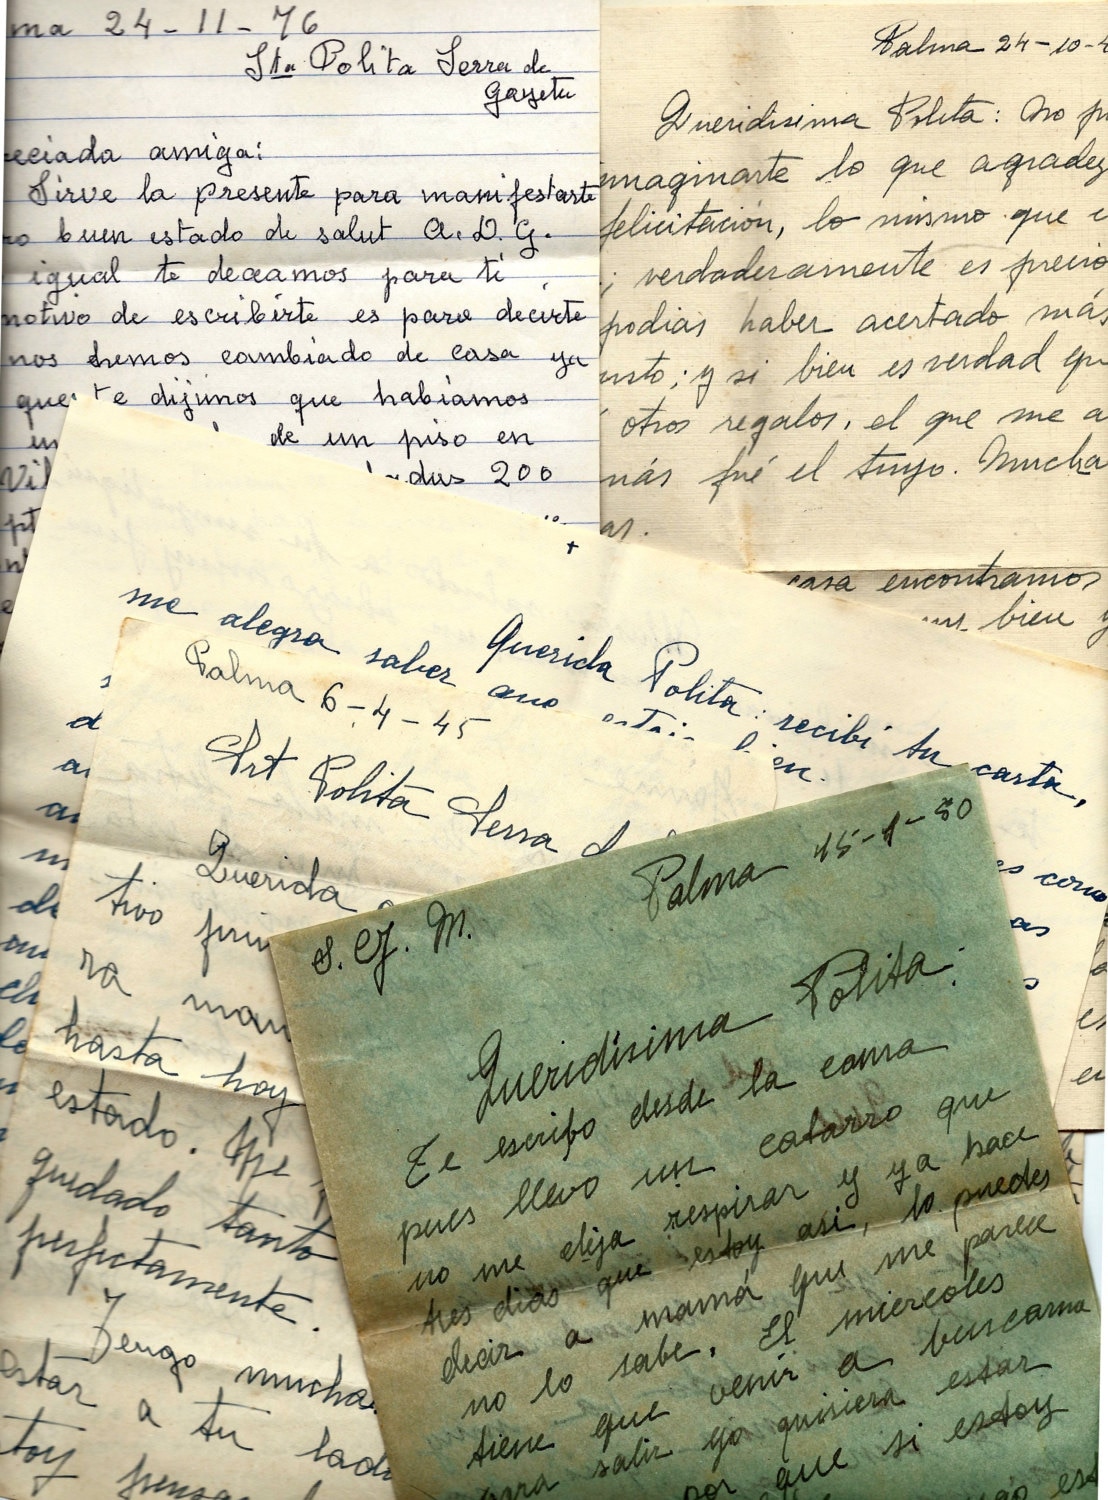 ma 24-11-76
Sta Polita Serra de
Gayeta
eciada amiga:
Sirve la presente para manifestarte
ro buen estado de salut A.D.G.
igual te deceamos para ti
motivo de escribirte es para decirte
nos hemos cambiado de casa ya
que te dijimos que habíamos
de un piso en
Vil
200
pt
Palma 24-10-4
Queridisima Polita: No pu
imaginarte lo que agradez
felicitación, lo mismo que e
; verdaderamente es precio
podias haber acertado más
usto; y si bien es verdad que
otros regalos, el que me a
más fué el tuyo. Mucha
as.
casa encontramos
bien y
+
me alegra saber que estais bien.
Querida Polita: recibi tu carta,
es como
as
Palma 6-4-45
Srt Polita Serra d
Querida
tivo prin
ra man
hasta hoy
estado. Me
quedado tanto
perfectamente.
Tengo mucha
estar a tu lado
toy pensa
S. C. J. M.
Palma 15-1-50
Queridísima Polita:
Te escribo desde la cama
pues llevo un catarro que
no me deja respirar y ya hace
tres dias que estoy asi, lo puedes
decir a mamá que me parece
no lo sabe. El miercoles
tiene que venir a buscarme
para salir yo quisiera estar
por que si estoy
est